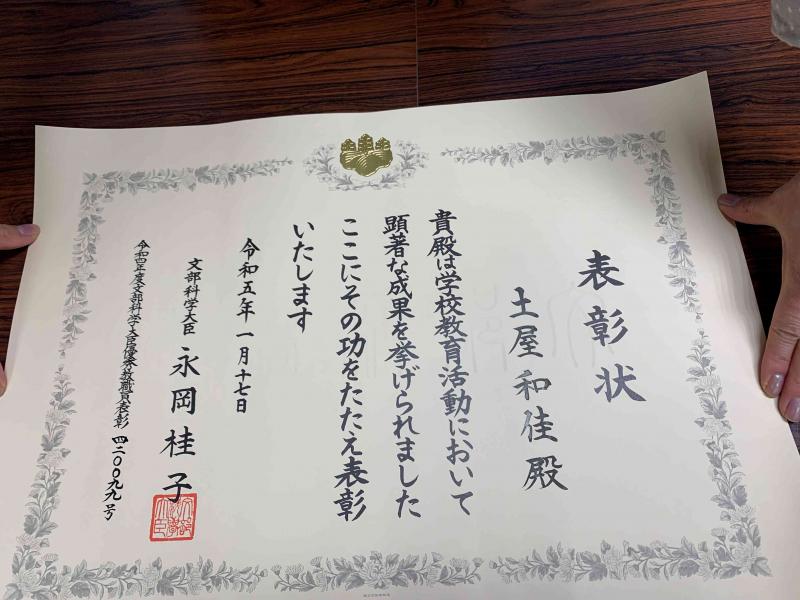 表彰状
土屋和佳殿
貴殿は学校教育活動において
顕著な成果を挙げられました
ここにその功をたたえ表彰
いたします
令和五年一月十七日
文部科学大臣 永岡桂子
令和四年度文部科学大臣優秀教職員表彰 四二〇〇九九号